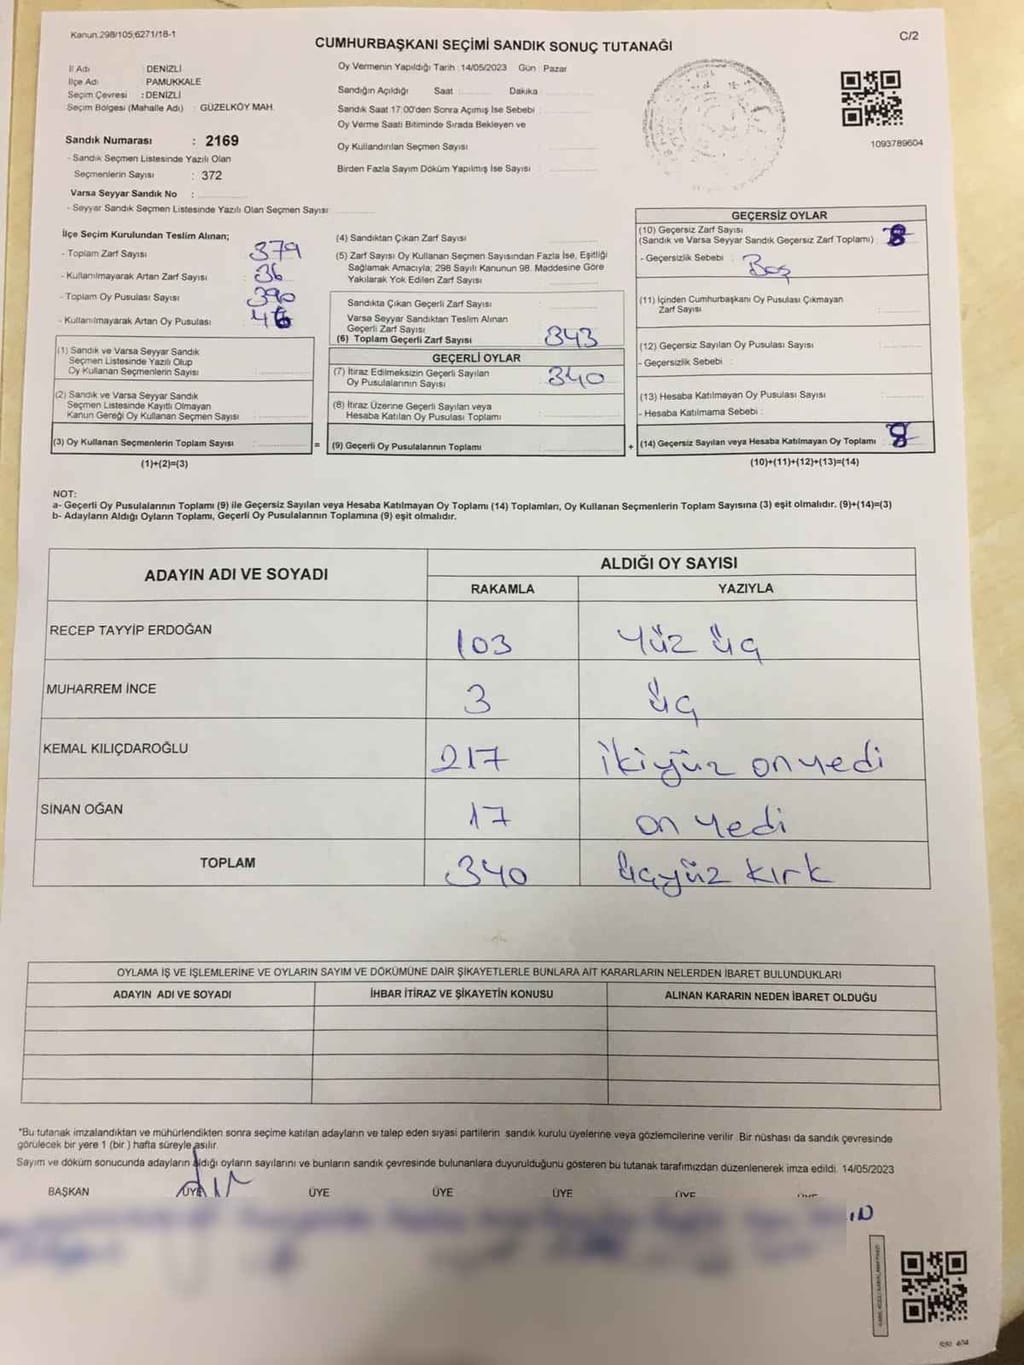 Kanun.298/105,6271/18-1
C/2
CUMHURBAŞKANI SEÇİMİ SANDIK SONUÇ TUTANAĞI
İl Adı : DENİZLİ
İlçe Adı : PAMUKKALE
Seçim Çevresi : DENİZLİ
Seçim Bölgesi (Mahalle Adı) : GÜZELKÖY MAH.
Sandık Numarası : 2169
- Sandık Seçmen Listesinde Yazılı Olan
Seçmenlerin Sayısı : 372
Varsa Seyyar Sandık No :
- Seyyar Sandık Seçmen Listesinde Yazılı Olan Seçmen Sayısı
Oy Vermenin Yapıldığı Tarih : 14/05/2023 Gün : Pazar
Sandığın Açıldığı Saat Dakika
Sandık Saat 17:00'den Sonra Açımış İse Sebebi :
Oy Verme Saati Bitiminde Sırada Bekleyen ve
Oy Kullandırılan Seçmen Sayısı
Birden Fazla Sayım Döküm Yapılmış İse Sayısı
1093789604
İlçe Seçim Kurulundan Teslim Alınan;
- Toplam Zarf Sayısı : 379
- Kullanılmayarak Artan Zarf Sayısı : 36
- Toplam Oy Pusulası Sayısı : 390
- Kullanılmayarak Artan Oy Pusulası :
(1) Sandık ve Varsa Seyyar Sandık
Seçmen Listesinde Yazılı Olup
Oy Kullanan Seçmenlerin Sayısı
(2) Sandık ve Varsa Seyyar Sandık
Seçmen Listesinde Kayıtlı Olmayan
Kanun Gereği Oy Kullanan Seçmen Sayısı
(3) Oy Kullanan Seçmenlerin Toplam Sayısı
(1)+(2)=(3)
(4) Sandıktan Çıkan Zarf Sayısı
(5) Zarf Sayısı Oy Kullanan Seçmen Sayısından Fazla İse, Eşitliği
Sağlamak Amacıyla; 298 Sayılı Kanunun 98. Maddesine Göre
Yakılarak Yok Edilen Zarf Sayısı
Sandıkta Çıkan Geçerli Zarf Sayısı
Varsa Seyyar Sandıktan Teslim Alınan
Geçerli Zarf Sayısı
(6) Toplam Geçerli Zarf Sayısı 343
GEÇERLİ OYLAR
(7) İtiraz Edilmeksizin Geçerli Sayılan
Oy Pusulalarının Sayısı 340
(8) İtiraz Üzerine Geçerli Sayılan veya
Hesaba Katılan Oy Pusulası Toplamı
= (9) Geçerli Oy Pusulalarının Toplamı
GEÇERSİZ OYLAR
(10) Geçersiz Zarf Sayısı
(Sandık ve Varsa Seyyar Sandık Geçersiz Zarf Toplamı) :
- Geçersizlik Sebebi : Boş
(11) İçinden Cumhurbaşkanı Oy Pusulası Çıkmayan
Zarf Sayısı :
(12) Geçersiz Sayılan Oy Pusulası Sayısı :
- Geçersizlik Sebebi :
(13) Hesaba Katılmayan Oy Pusulası Sayısı :
- Hesaba Katılmama Sebebi :
+ (14) Geçersiz Sayılan veya Hesaba Katılmayan Oy Toplamı :
(10)+(11)+(12)+(13)=(14)
NOT:
a- Geçerli Oy Pusulalarının Toplamı (9) ile Geçersiz Sayılan veya Hesaba Katılmayan Oy Toplamı (14) Toplamları, Oy Kullanan Seçmenlerin Toplam Sayısına (3) eşit olmalıdır. (9)+(14)=(3)
b- Adayların Aldığı Oyların Toplamı, Geçerli Oy Pusulalarının Toplamına (9) eşit olmalıdır.
ADAYIN ADI VE SOYADI
ALDIĞI OY SAYISI
RAKAMLA YAZIYLA
RECEP TAYYİP ERDOĞAN 103 Yüz üç
MUHARREM İNCE 3 üç
KEMAL KILIÇDAROĞLU 217 ikiyüz onyedi
SİNAN OĞAN 17 on yedi
TOPLAM 340 üçyüz kırk
OYLAMA İŞ VE İŞLEMLERİNE VE OYLARIN SAYIM VE DÖKÜMÜNE DAİR ŞİKAYETLERLE BUNLARA AİT KARARLARIN NELERDEN İBARET BULUNDUKLARI
ADAYIN ADI VE SOYADI İHBAR İTİRAZ VE ŞİKAYETİN KONUSU ALINAN KARARIN NEDEN İBARET OLDUĞU
"Bu tutanak imzalandıktan ve mühürlendikten sonra seçime katılan adayların ve talep eden siyasi partilerin sandık kurulu üyelerine veya gözlemcilerine verilir. Bir nüshası da sandık çevresinde
görülecek bir yere 1 (bir) hafta süreyle asılır.
Sayım ve döküm sonucunda adayların aldığı oyların sayılarını ve bunların sandık çevresinde bulunanlara duyurulduğunu gösteren bu tutanak tarafımızdan düzenlenerek imza edildi. 14/05/2023
BAŞKAN ÜYE ÜYE ÜYE ÜYE ÜYE